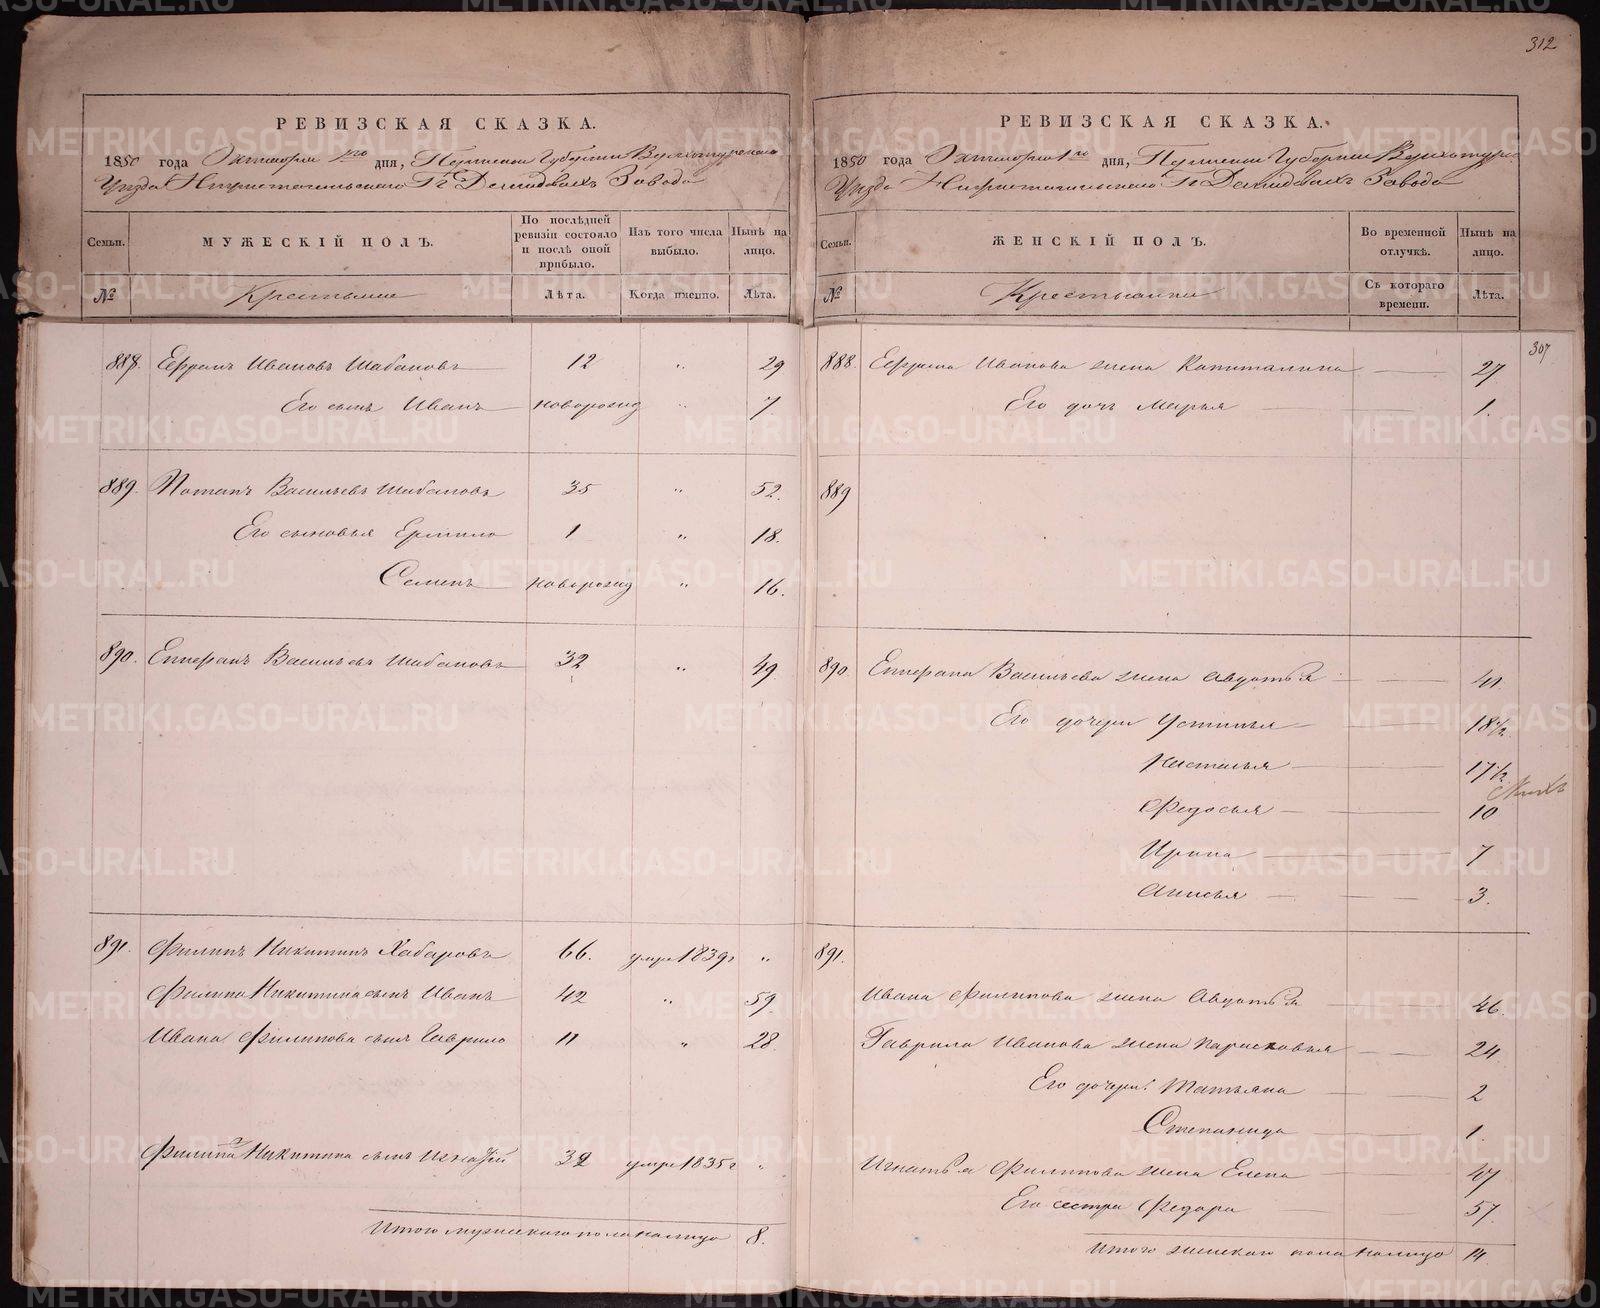 312
РЕВИЗСКАЯ СКАЗКА.
1850 года Октября 1го дня, Пермской Губернии Верхотурскаго
Уезда Нижнетагильскаго Гг Демидовыхъ Завода
Семьи.
МУЖЕСКІЙ ПОЛЪ.
По послѣдней ревизіи состояло и послѣ оной прибыло.
Изъ того числа выбыло.
Нынѣ на лицо.
№
Крестьяне
Лѣта.
Когда именно.
Лѣта.
888. Ефремъ Ивановъ Шабановъ 12 „ 29
Его сынъ Иванъ новорожд „ 7
889. Потапъ Васильевъ Шабановъ 35 „ 52.
Его сыновья Ермило 1 „ 18.
Семенъ новорожд „ 16.
890. Епифанъ Васильевъ Шабановъ 32 „ 49
891. Филипъ Никитинъ Хабаровъ 66. умре 1839г „
Филипа Никитина сынъ Иванъ 42 „ 59.
Ивана Филипова сынъ Гаврило 11 „ 28
Филипа Никитина сынъ Игнатій 32 умре 1835г „
Итого мужескаго пола налицо 8.
РЕВИЗСКАЯ СКАЗКА.
1850 года Октября 1го дня, Пермской Губернии Верхотурс
Уезда Нижнетагильскаго Гг Демидовыхъ Завода
Семьи.
ЖЕНСКІЙ ПОЛЪ.
Во временной отлучкѣ.
Нынѣ на лицо.
№
Крестьянки
Съ котораго времени.
Лѣта.
307
888. Ефрема Иванова жена Капиталина 27
Его дочь Марья 1.
889
890 Епифана Васильева жена Авдотья 41
Его дочери Устинья 18½
Наталья 17½
Федосья 10
Ирина 7
Анисья 3.
891.
Ивана Филипова жена Авдотья 46.
Гаврила Иванова жена Парасковья 24
Его дочери: Татьяна 2
Степанида 1.
Игнатья Филипова жена Елена 47
Его сестра Федора 57.
Итого женскаго пола налицо 14.
METRIKI.GASO-URAL.RU